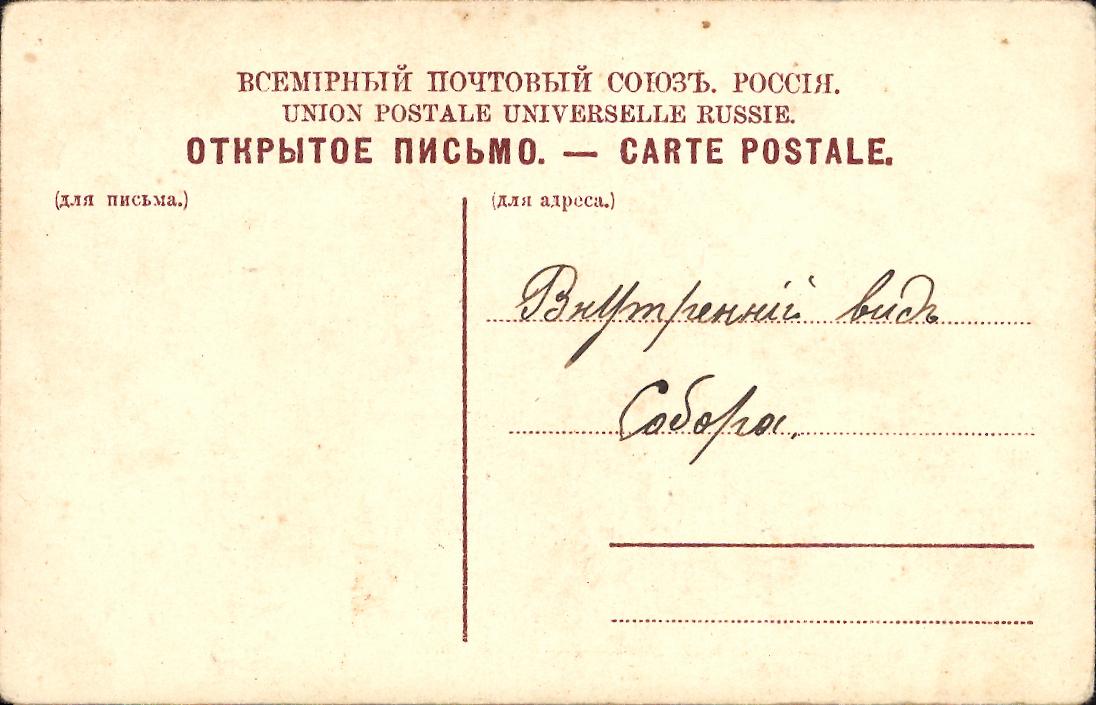 ВСЕМІРНЫЙ ПОЧТОВЫЙ СОЮЗЪ. РОССІЯ.
UNION POSTALE UNIVERSELLE RUSSIE.
ОТКРЫТОЕ ПИСЬМО. — CARTE POSTALE.
(для письма.)
(для адреса.)
Внутренній видъ
Собора.